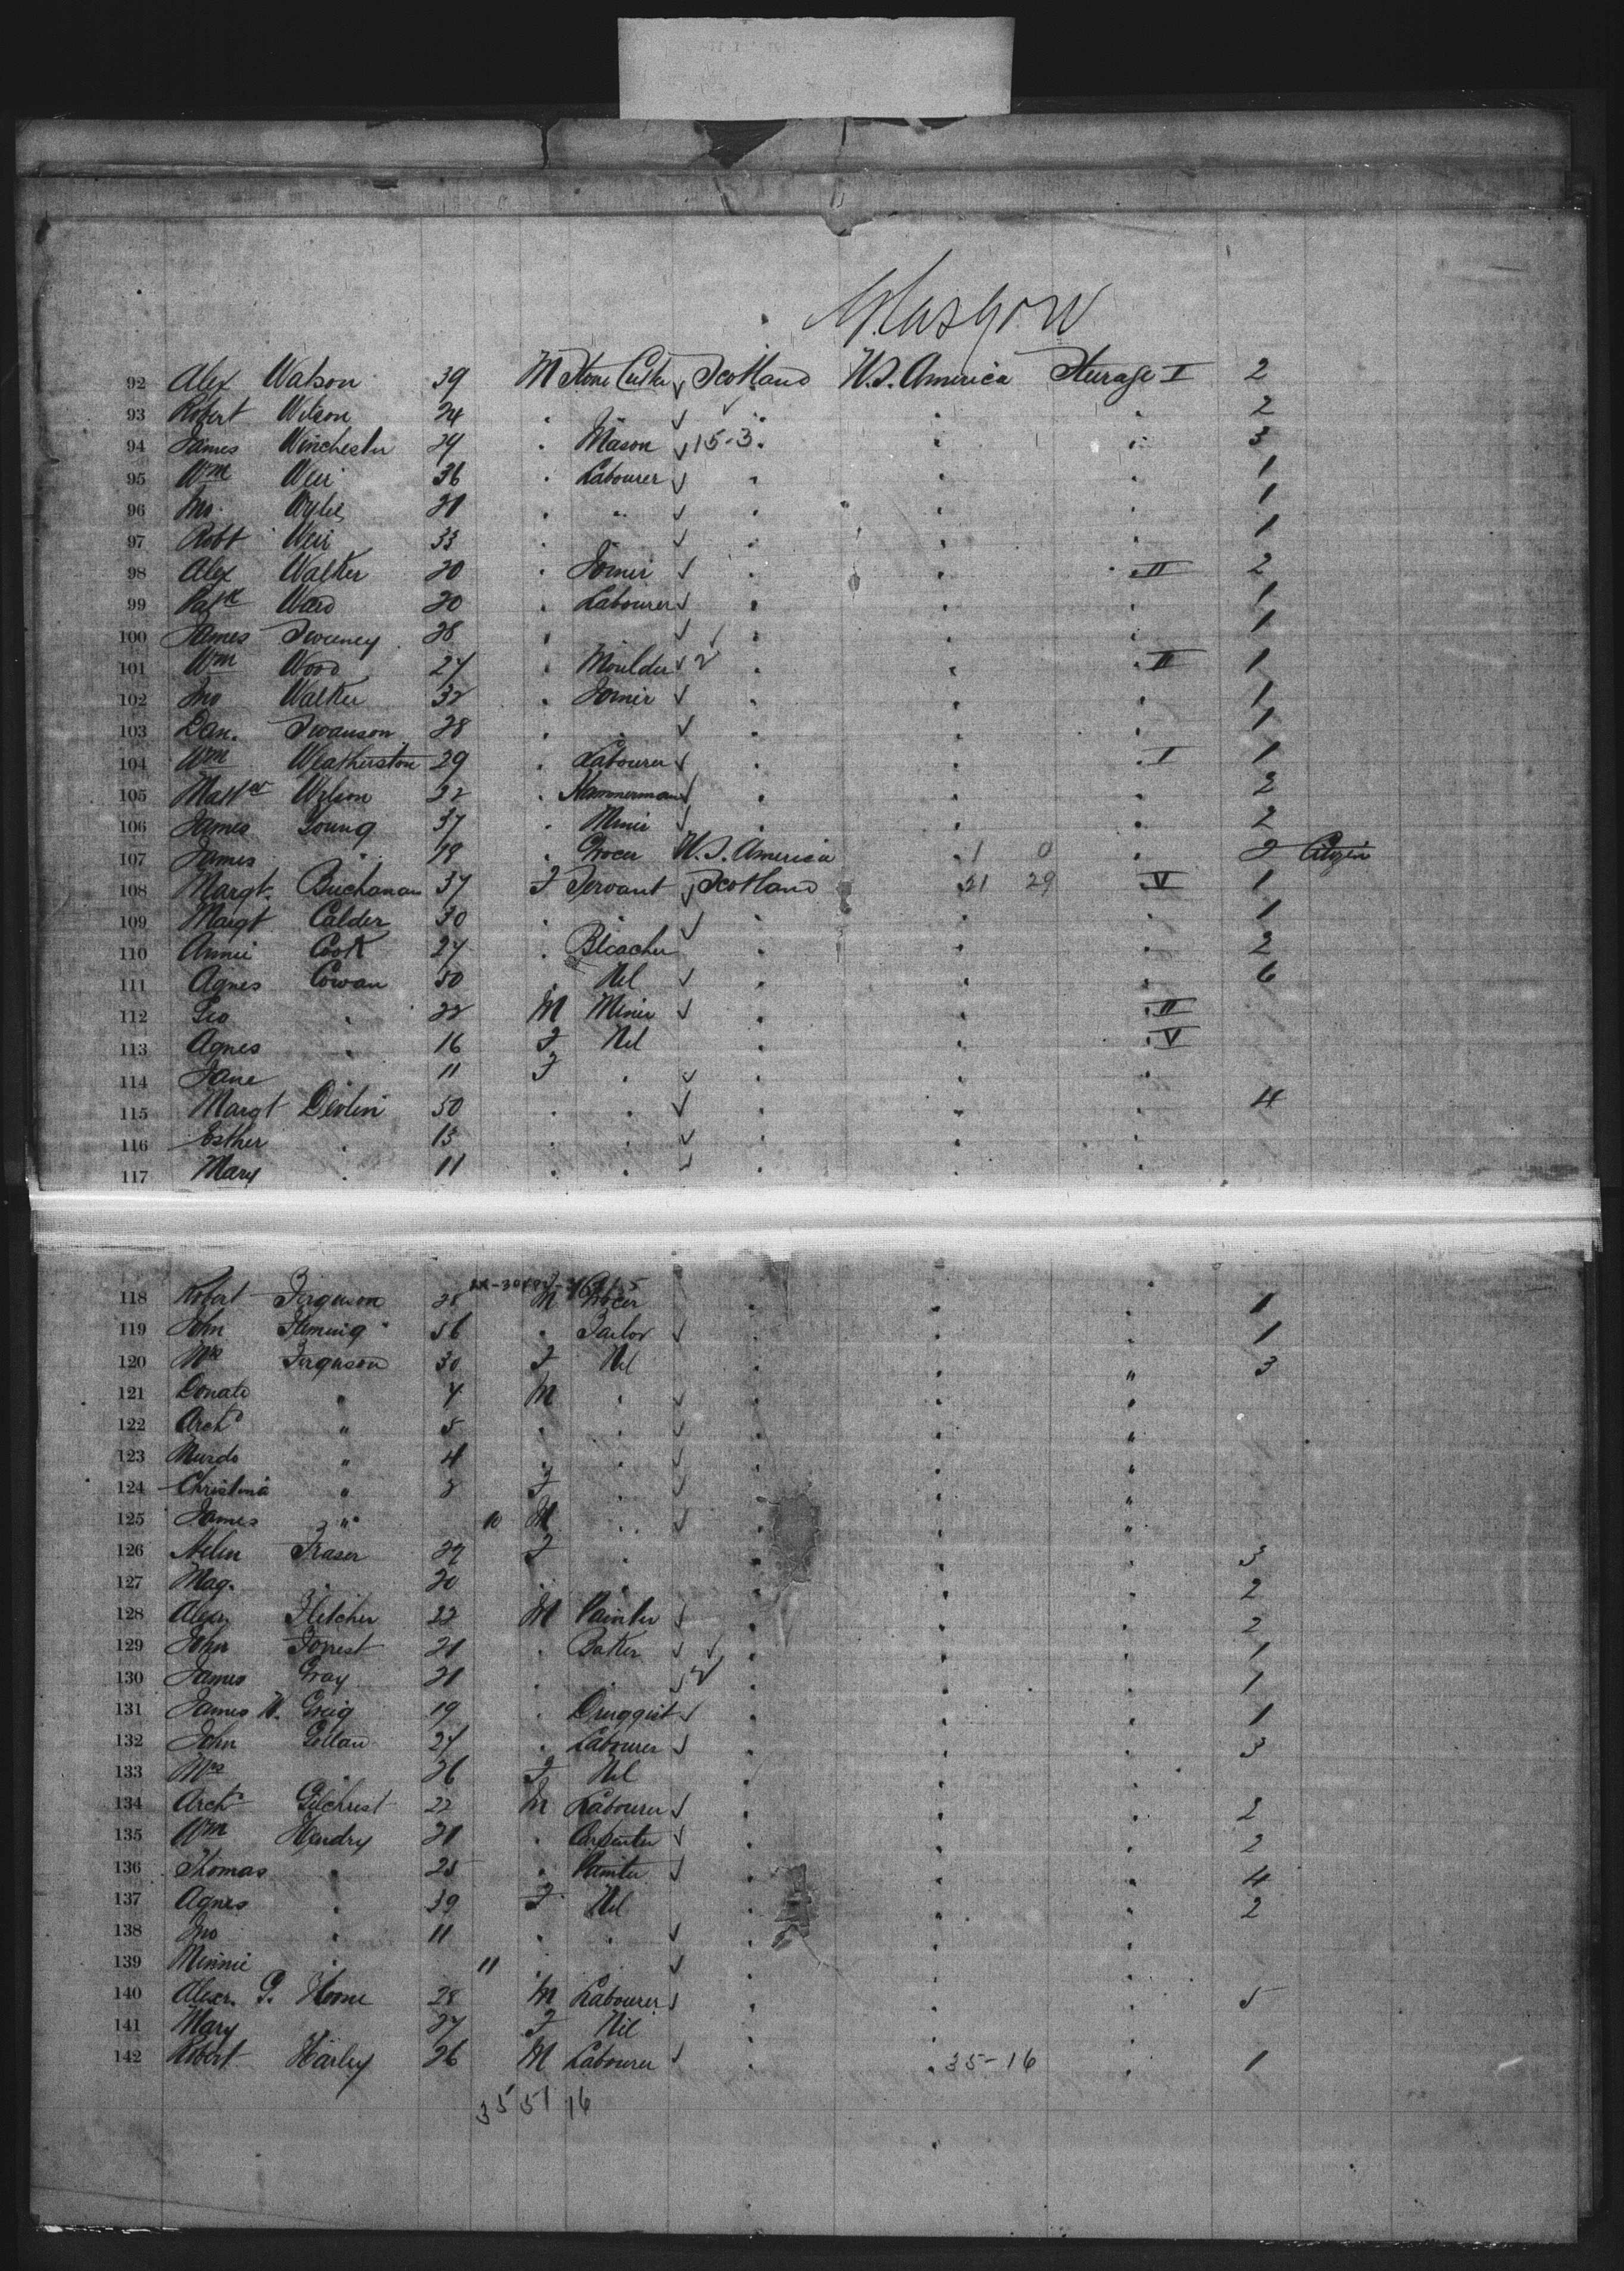 Glasgow
92 Alex Watson 39 M Stone Cutter Scotland U.S. America Steerage I 2
93 Robert Wilson 24 . . . . . 2
94 James Winchester 24 . Mason 15-3 . . . 3
95 Wm Weir 36 . Labourer . . . 1
96 Jno. Wylie 21 . " . . . 1
97 Robt Weir 33 . . . . 1
98 Alex Walker 20 . Joiner . . II 2
99 Patk Ward 20 . Labourer . . . 1
100 James Sweeney 28 . . . . 1
101 Wm Wood 27 . Moulder . . II 1
102 Jno Walker 32 . Joiner . . . 1
103 Dan. Swanson 28 . . . . . 1
104 Wm Weatherston 29 . Labourer . . I 1
105 Mattw Wilson 32 . Hammerman . . . 2
106 James Young 37 . Miner . . . 2
107 James " 19 . Grocer U.S. America . 1 0 . 2 Citizen
108 Margt. Buchanan 37 F Servant Scotland . 21 29 V 1
109 Margt Calder 30 . . . . . 1
110 Annie Cook 27 . Bleacher . . . 2
111 Agnes Cowan 50 . Nil . . . 6
112 Geo . 22 M Miner . . II
113 Agnes . 16 F Nil . . V
114 Jane . 11 F . . . .
115 Margt Devlin 50 . . . . . 4
116 Esther . 13 . . . . .
117 Mary . 11 . . . . .
118 Robert Ferguson 28 M Grocer . . . 1
119 John Fleming 56 . Tailor . . . 1
120 Mrs Ferguson 30 F Nil . . " 3
121 Donald " 7 M . . . .
122 Archd " 5 . . . . "
123 Murdo " 4 . . . . "
124 Christina " 2 F . . . "
125 James " 10 M . . . "
126 Helen Fraser 27 F . . . . 3
127 Mag. . 20 . . . . . 2
128 Alexr. Fletcher 22 M Painter . . . 2
129 John Forrest 21 . Baker . . . 1
130 James Gray 21 . . . . . 1
131 James W. Greig 19 . Druggist . . . 1
132 John 24 . Labourer . . . 3
133 Mrs . 26 F Nil . . .
134 Archd Gilchrist 22 M Labourer . . . 2
135 Wm Hendry 21 . Carpenter . . . 2
136 Thomas . 25 . Painter . . . 4
137 Agnes . 39 F Nil . . . 2
138 Jno . 11 . . . . .
139 Minnie . 11 . . . .
140 Alexr. G. Home 28 M Labourer . . . 5
141 Mary . 27 F Nil . . .
142 Robert Harley 26 M Labourer . . 35-16 . 1
35 51 16